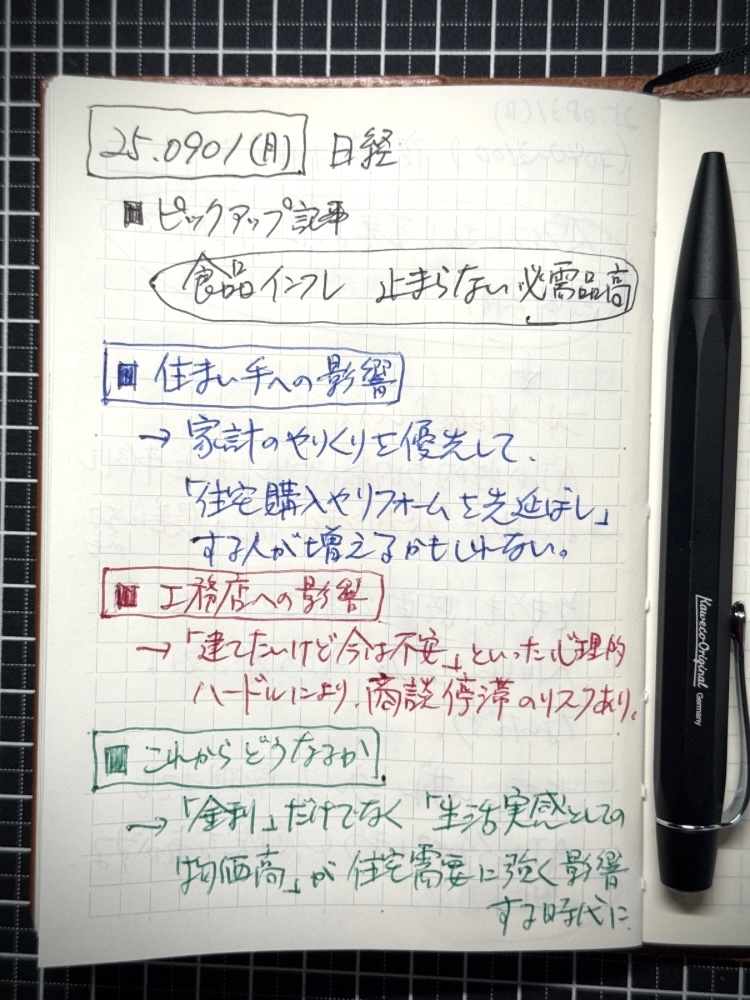 25.0901(月) 日経
■ ピックアップ記事
食品インフレ 止まらない必需品高
■ 住まい手への影響
→ 家計のやりくりを優先して、
「住宅購入やリフォームを先延ばし」
する人が増えるかもしれない。
■ 工務店への影響
→ 「建てたいけど今は不安」といった心理的
ハードルにより、商談停滞のリスクあり。
■ これからどうなるか
→ 「金利」だけでなく「生活実感としての
物価高」が住宅需要に強く影響
する時代に
Kaweco Original
Germany